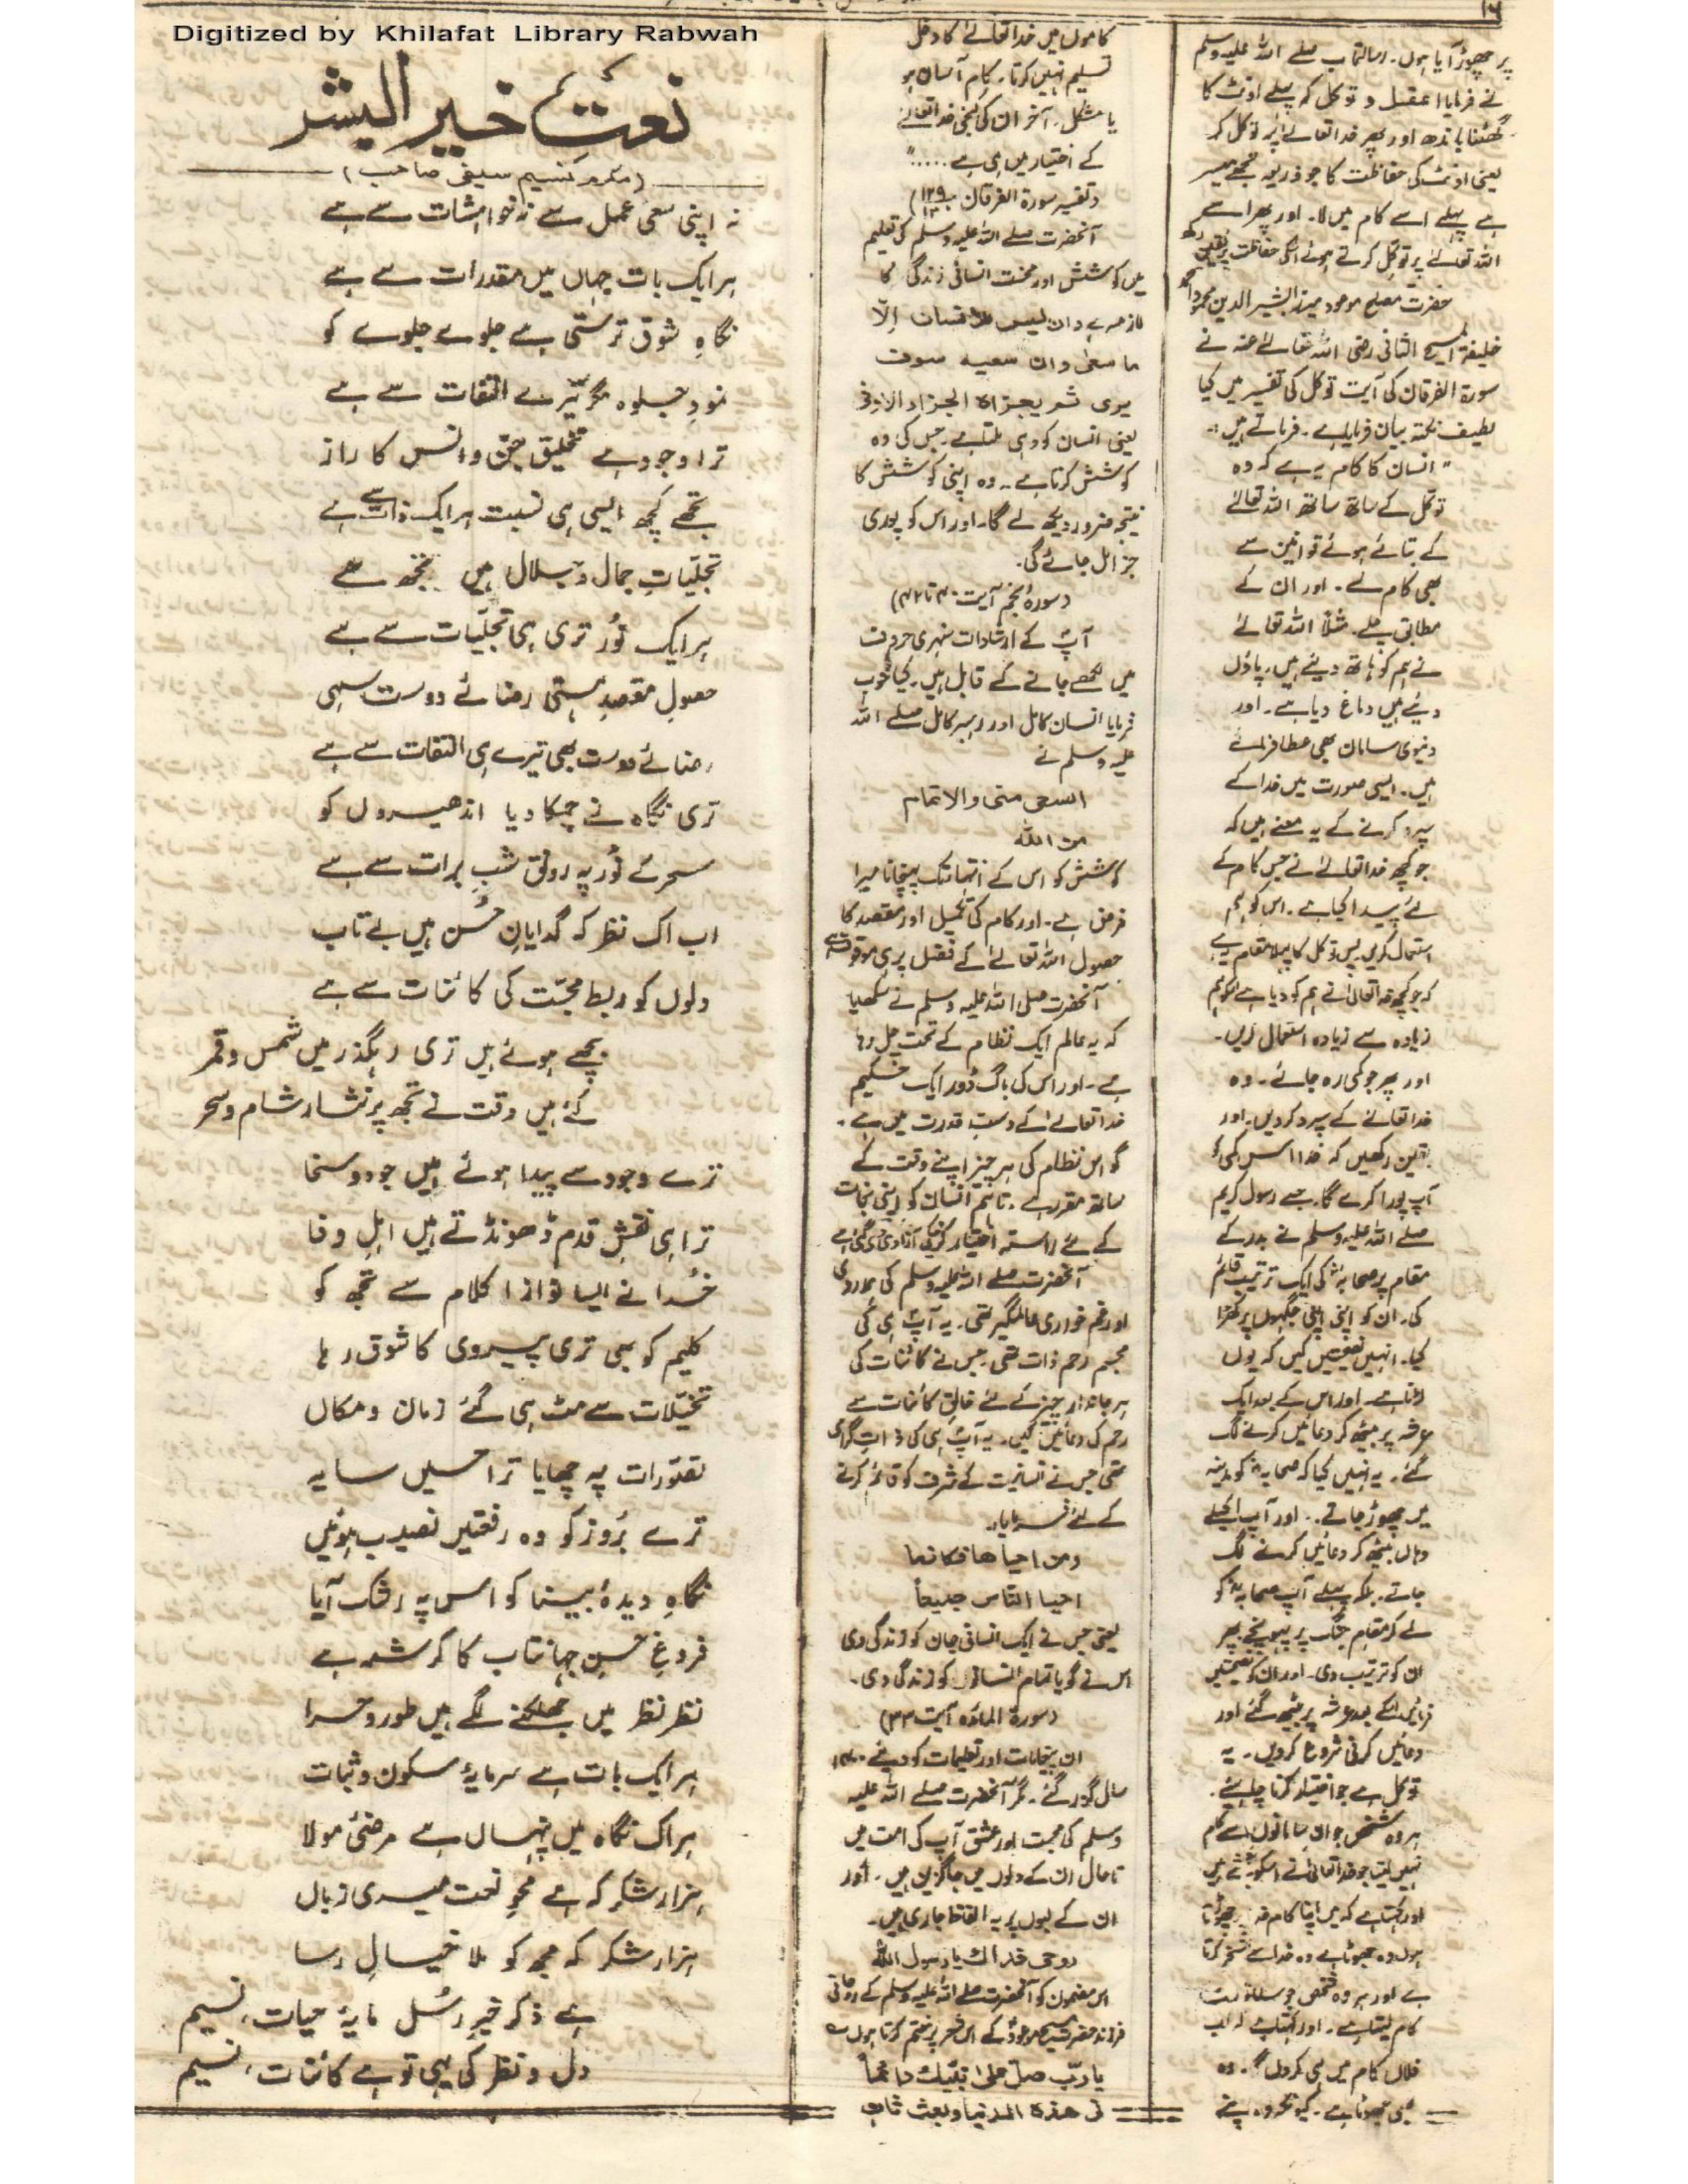 ۱۶
Digitized by Khilafat Library Rabwah
پر چھوڑ آیا ہوں۔ رسالتمآب صلے اللہ علیہ وسلم
نے فرمایا اعقل و توکل کہ پہلے اونٹ کا
گھٹنا باندھ اور پھر خدا تعالےٰ پر توکل کر
یعنی اونٹ کی حفاظت کا جو ذریعہ تجھے میسر
ہے پہلے اسے کام میں لا۔ اور پھر اسے
اللہ تعالےٰ پر توکل کرتے ہوئے اسکی حفاظت پر یقین رکھ
حضرت مصلح موعود میرزا بشیر الدین محمود احمد
خلیفۃ المسیح الثانی رضی اللہ تعالےٰ عنہ نے
سورۃ الفرقان کی آیت توکل کی تفسیر میں کیا
لطیف نکتہ بیان فرمایا ہے۔ فرماتے ہیں:۔
" انسان کا کام یہ ہے کہ وہ
توکل کے ساتھ ساتھ اللہ تعالےٰ
کے بتائے ہوئے قوانین سے
بھی کام لے۔ اور ان کے
مطابق چلے۔ مثلاً اللہ تعالےٰ
نے ہم کو ہاتھ دیئے ہیں۔ پاؤں
دیئے ہیں دماغ دیا ہے۔ اور
دنیوی سامان بھی عطا فرمائے
ہیں۔ ایسی صورت میں خدا کے
سپرد کرنے کے یہ معنے ہیں کہ
جو کچھ خدا تعالےٰ نے جس کام کے
لئے پیدا کیا ہے۔ اس کو ہم
استعمال کریں پس توکل کا پہلا مقام یہ ہے
کہ جو کچھ خدا تعالیٰ نے ہم کو دیا ہے اسکو ہم
زیادہ سے زیادہ استعمال کریں۔
اور پھر جو کمی رہ جائے۔ وہ
خدا تعالےٰ کے سپرد کر دیں۔ اور
یقین رکھیں کہ خدا اس کمی کو
آپ پورا کرے گا۔ جیسے رسول کریم
صلے اللہ علیہ وسلم نے بدر کے
مقام پر صحابہؓ کی ایک ترتیب قائم
کی۔ ان کو اپنی اپنی جگہوں پر کھڑا
کیا۔ انہیں نصیحتیں کیں کہ یوں
لڑنا ہے۔ اور اس کے بعد ایک
عرشہ پر بیٹھ کر دعائیں کرنے لگ
گئے۔ یہ نہیں کیا کہ صحابہؓ کو مدینہ
میں چھوڑ جاتے۔ اور آپ اکیلے
وہاں بیٹھ کر دعائیں کرنے لگ
جاتے۔ بلکہ پہلے آپ صحابہؓ کو
لے کر مقام جنگ پر پہونچے پھر
ان کو ترتیب دی۔ اور ان کو نصیحتیں
فرمائیں اسکے بعد عرشہ پر بیٹھ گئے اور
دعائیں کرنی شروع کر دیں۔ یہ
توکل ہے جو اختیار کرنا چاہیئے۔
ہر وہ شخص جو ان سامانوں سے کام
نہیں لیتا جو خدا تعالیٰ نے اسکو بخشے ہیں
اور کہتا ہے کہ میں اپنا کام خدا پر چھوڑتا
ہوں وہ جھوٹا ہے وہ خدا سے تمسخر کرتا
ہے اور ہر وہ شخص جو سامانوں سے
کام لیتا ہے۔ اور کہتا ہے کہ اب
فلاں کام میں ہی کروں گا۔ وہ
بھی جھوٹا ہے۔ کیونکہ وہ اپنے
کاموں میں خدا تعالےٰ کا دخل
تسلیم نہیں کرتا۔ کام آسان ہو
یا مشکل۔ آخر ان کی کنجی خدا تعالےٰ
کے اختیار میں ہی ہے ....."
(تفسیر سورۃ الفرقان ۱۲۹)
آنحضرت صلے اللہ علیہ وسلم کی تعلیم
میں کوشش اور محنت انسانی زندگی کا
لازمہ ہے وان لیس للانسان الّا
ما سعٰی وان سعیہ سوف
یری ثم یجزاہ الجزاء الاوفٰی
یعنی انسان کو وہی ملتا ہے۔ جس کی وہ
کوشش کرتا ہے۔ وہ اپنی کوشش کا
نتیجہ ضرور دیکھ لے گا۔ اور اس کو پوری
جزا مل جائے گی۔
(سورۃ النجم آیت ۴۰ تا ۴۲)
آپؐ کے ارشادات سنہری حروف
میں لکھے جانے کے قابل ہیں۔ کیا خوب
فرمایا انسان کامل اور رہبر کامل صلے اللہ
علیہ وسلم نے
السعی منی والاتمام
من اللہ
کوشش کو اس کے انتہا تک پہنچانا میرا
فرض ہے۔ اور کام کی تکمیل اور مقصد کا
حصول اللہ تعالےٰ کے فضل پر ہی موقوف ہے
آنحضرت صلی اللہ علیہ وسلم نے سکھایا
کہ یہ عالم ایک نظام کے تحت چل رہا
ہے۔ اور اس کی باگ ڈور ایک حکیم
خدا تعالےٰ کے دست قدرت میں ہے۔
گو اس نظام کی ہر چیز اپنے وقت کے
ساتھ مقرر ہے۔ تاہم انسان کو اپنی نجات
کے لئے راستہ اختیار کرنیکی آزادی دی گئی ہے
آنحضرت صلے اللہ علیہ وسلم کی ہمدردی
اور غم خواری عالمگیر تھی۔ یہ آپؐ ہی کی
مجسم رحم ذات تھی جس نے کائنات کی
ہر جاندار چیز کے لئے خالق کائنات سے
رحم کی دعائیں کیں۔ یہ آپؐ ہی کی ذات گرامی
تھی جس نے انسانیت کے شرف کو قائم کرنے
کے لئے فرمایا۔
ومن احیاھا فکانما
احیا الناس جمیعاً
یعنی جس نے ایک انسانی جان کو زندگی دی
اس نے گویا تمام انسانوں کو زندگی دی۔
(سورۃ المائدہ آیت ۳۳)
ان پیغامات اور تعلیمات کو دیئے ۱۴۰۰
سال گذر گئے۔ مگر آنحضرت صلے اللہ علیہ
وسلم کی محبت اور عشق آپ کی امت میں
تا حال ان کے دلوں میں جاگزین ہیں۔ اور
ان کے لبوں پر یہ الفاظ جاری ہیں۔
روحی فداک یا رسول اللہ
اس مضمون کو آنحضرت صلے اللہ علیہ وسلم کے روحانی
فرزند حضرت مسیح موعودؑ کے اس شعر پر ختم کرتا ہوں
یا ربّ صلّ علیٰ نبیّک دائماً
فی ھذہ الدنیا وبعث ثان
نعتِ خیر البشر
(مکرم نسیم سیفی صاحب)
نہ اپنی سعی عمل سے نہ خواہشات سے ہے
ہر ایک بات جہاں میں مقدرات سے ہے
نگاہِ شوق ترستی ہے جلوے جلوے کو
نمودِ جلوہ مگر تیرے التفات سے ہے
ترا وجود ہے تخلیق جنّ و انس کا راز
تجھے کچھ ایسی ہی نسبت ہر ایک ذات سے ہے
تجلّیاتِ جمال و جلال ہیں تجھ سے
ہر ایک نُور تری ہی تجلّیات سے ہے
حصولِ مقصدِ ہستی رضائے دوست سہی
رضائے دوست بھی تیرے ہی التفات سے ہے
تری نگاہ نے چمکا دیا اندھیروں کو
سحر کے نُور پہ رونق شبِ برات سے ہے
اب اک نظر کہ گدایانِ حُسن ہیں بے تاب
دلوں کو ربط محبّت کی کائنات سے ہے
بچھے ہوئے ہیں تری رہگذر میں شمس و قمر
کئے ہیں وقت نے تجھ پر نثار شام و سحر
ترے وجود سے پیدا ہوئے ہیں جود و سخا
ترا ہی نقشِ قدم ڈھونڈتے ہیں اہلِ وفا
خُدا نے ایسا نوازا کلام سے تجھ کو
کلیم کو بھی تری پیروی کا شوق رہا
تخیّلات سے مٹ ہی گئے زمان و مکاں
تصوّرات پہ چھایا ترا حسیں سایہ
ترے بُروز کو وہ رفعتیں نصیب ہوئیں
نگاہِ دیدۂ بینا کو اس پہ رشک آیا
فروغِ حسنِ جہانتاب کا کرشمہ ہے
نظر نظر میں جھلکنے لگے ہیں طور و حرا
ہر ایک بات ہے سرمایۂ سکون و ثبات
ہر اک نگاہ میں پنہاں ہے مرضئ مولا
ہزار شکر کہ ہے محوِ نعت میری زباں
ہزار شکر کہ مجھ کو ملا خیالِ رسا
ہے ذکر خیرِ رسُل مایۂ حیات، نسیم
دل و نظر کی یہی تو ہے کائنات، نسیم